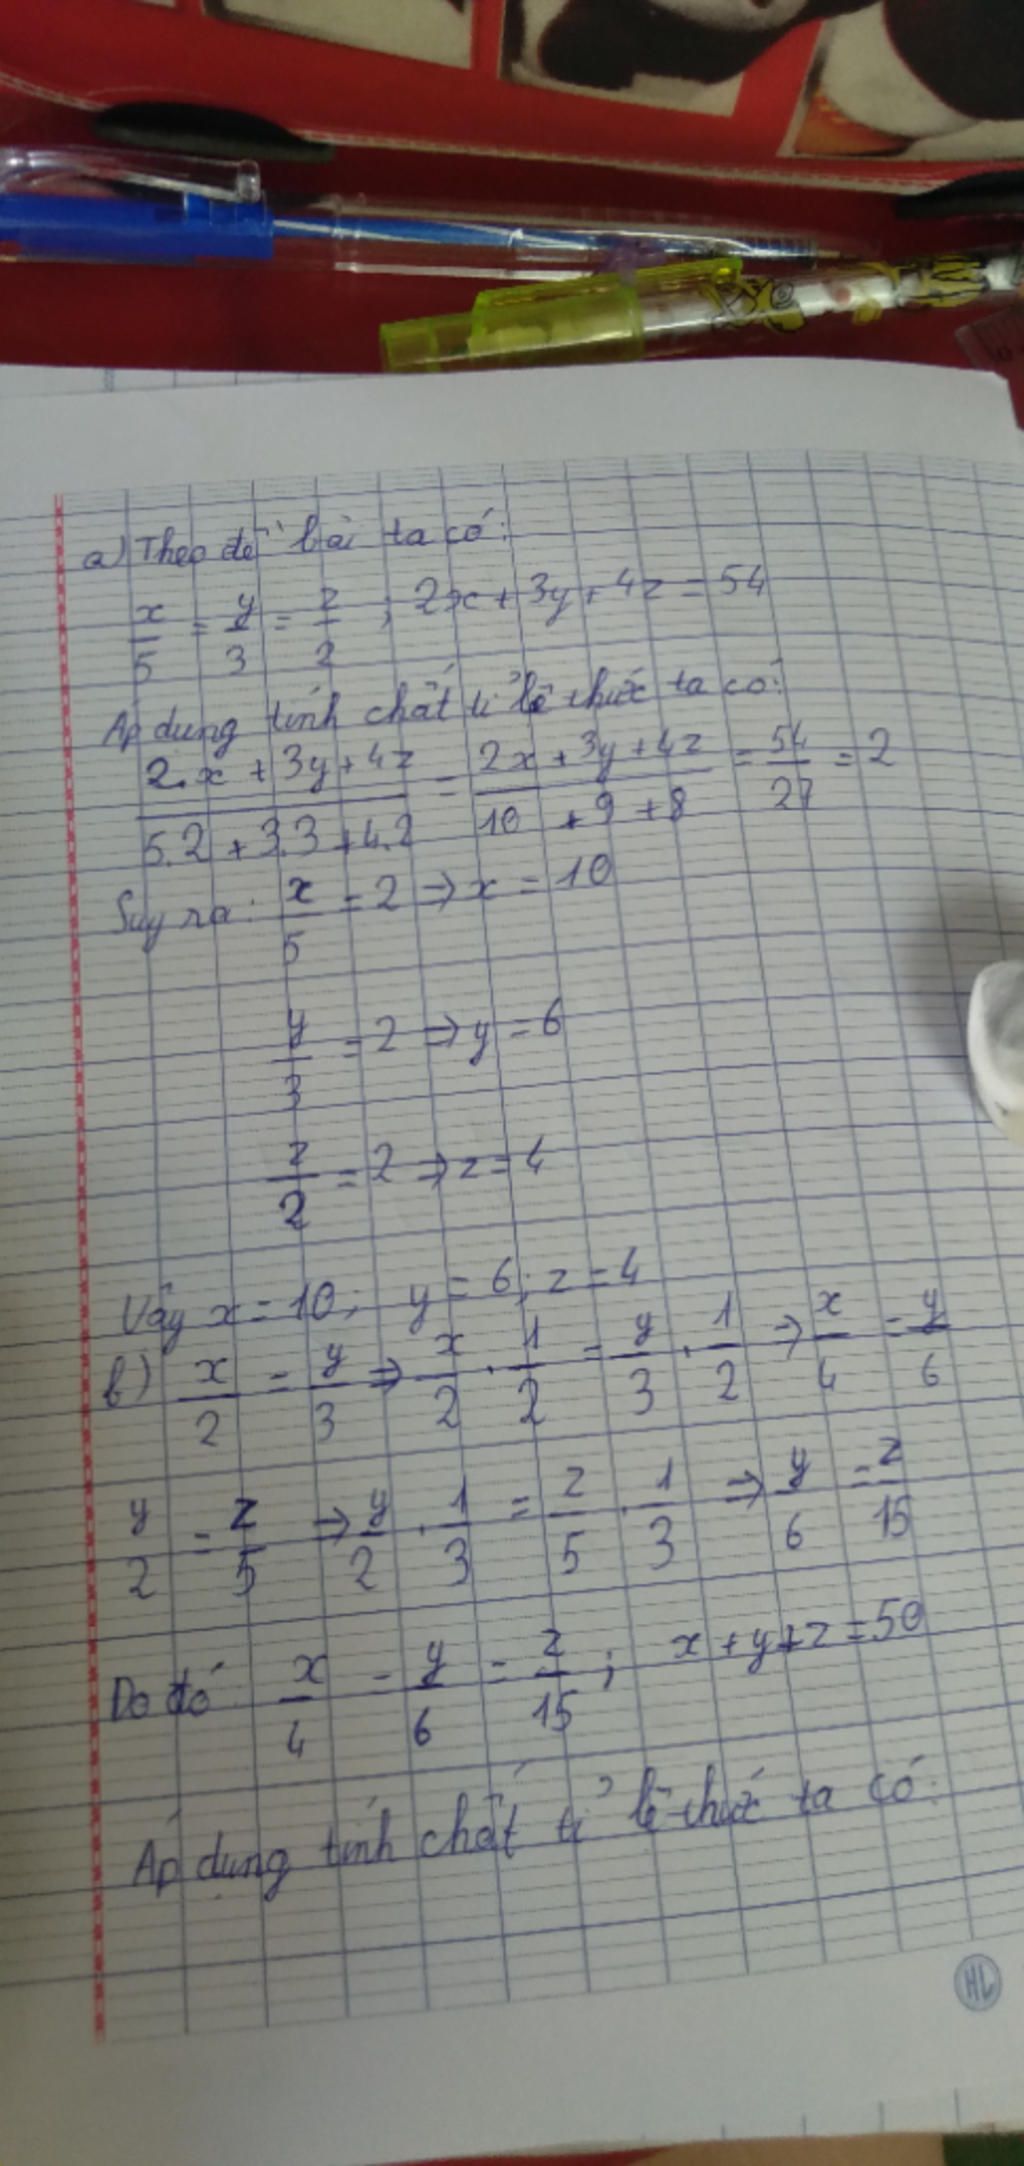 a) Theo đề bài ta có:
x/5 = y/3 = z/2 ; 2x + 3y + 4z = 54
Áp dụng tính chất tỉ lệ thức ta có:
2.x + 3y + 4z / 5.2 + 3.3 + 4.2 = 2x + 3y + 4z / 10 + 9 + 8 = 54/27 = 2
Suy ra: x/5 = 2 ⇒ x = 10
y/3 = 2 ⇒ y = 6
z/2 = 2 ⇒ z = 4
Vậy x = 10; y = 6; z = 4
b) x/2 = y/3 ⇒ x/2 . 1/2 = y/3 . 1/2 ⇒ x/4 = y/6
y/2 = z/5 ⇒ y/2 . 1/3 = z/5 . 1/3 ⇒ y/6 = z/15
Do đó x/4 = y/6 = z/15 ; x + y + z = 50
Áp dụng tính chất tỉ lệ thức ta có:
HL